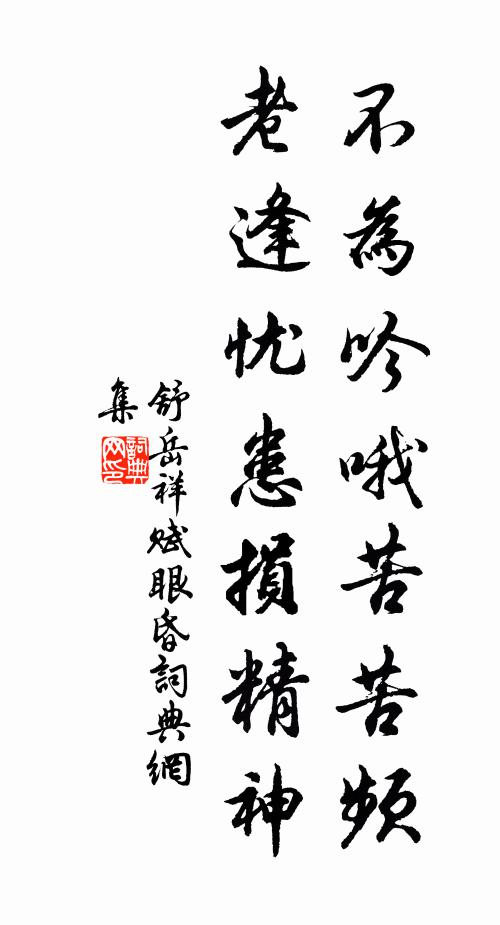 不為吟哦苦苦頻
老逢忧患損精神
舒岳祥賦眼昏詞典網
集
詞典
网